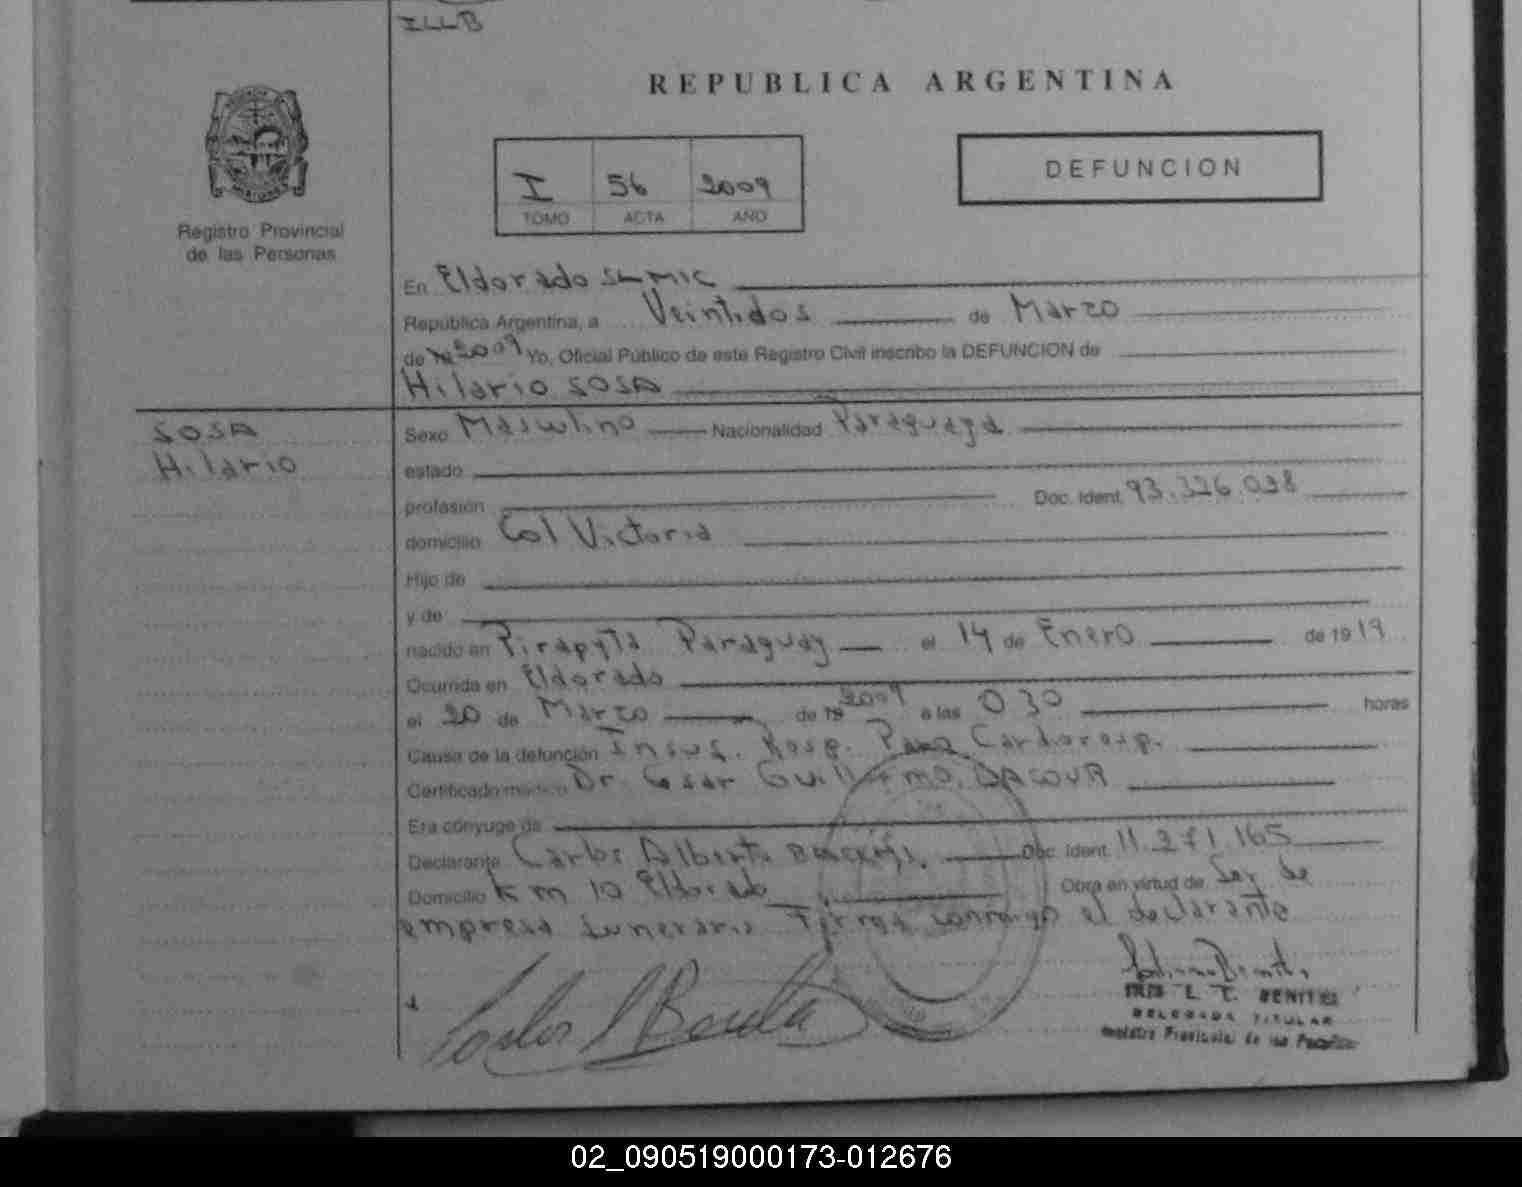 ILLB
REPUBLICA ARGENTINA
I 56 2009
TOMO ACTA AÑO
DEFUNCION
Registro Provincial
de las Personas
En Eldorado SLMIC
República Argentina, a Veintidos de Marzo
de 19 2009 Yo, Oficial Público de este Registro Civil inscribo la DEFUNCION de
Hilario SOSA
SOSA
Hilario
Sexo Masculino Nacionalidad Paraguaya
estado
profesión Doc. Ident. 93.326.028
domicilio Col Victoria
Hijo de
y de
nacido en Pirapyta Paraguay el 14 de Enero de 1919
Ocurrida en Eldorado
el 20 de Marzo de 19 2009 a las 0 30 horas
Causa de la defunción Insuf. Resp. Paro Cardioresp.
Certificado médico Dr Cesar Guillermo DACOUR
Era cónyuge de
Declarante Carlos Alberto Doc. Ident. 11.271.165
Domicilio Km 10 Eldorado Obra en virtud de Ser de
empresa funeraria Firma conmigo el declarante
IRIS L. T. BENITEZ
DELEGADA TITULAR
Registro Provincial de las Personas
02_090519000173-012676